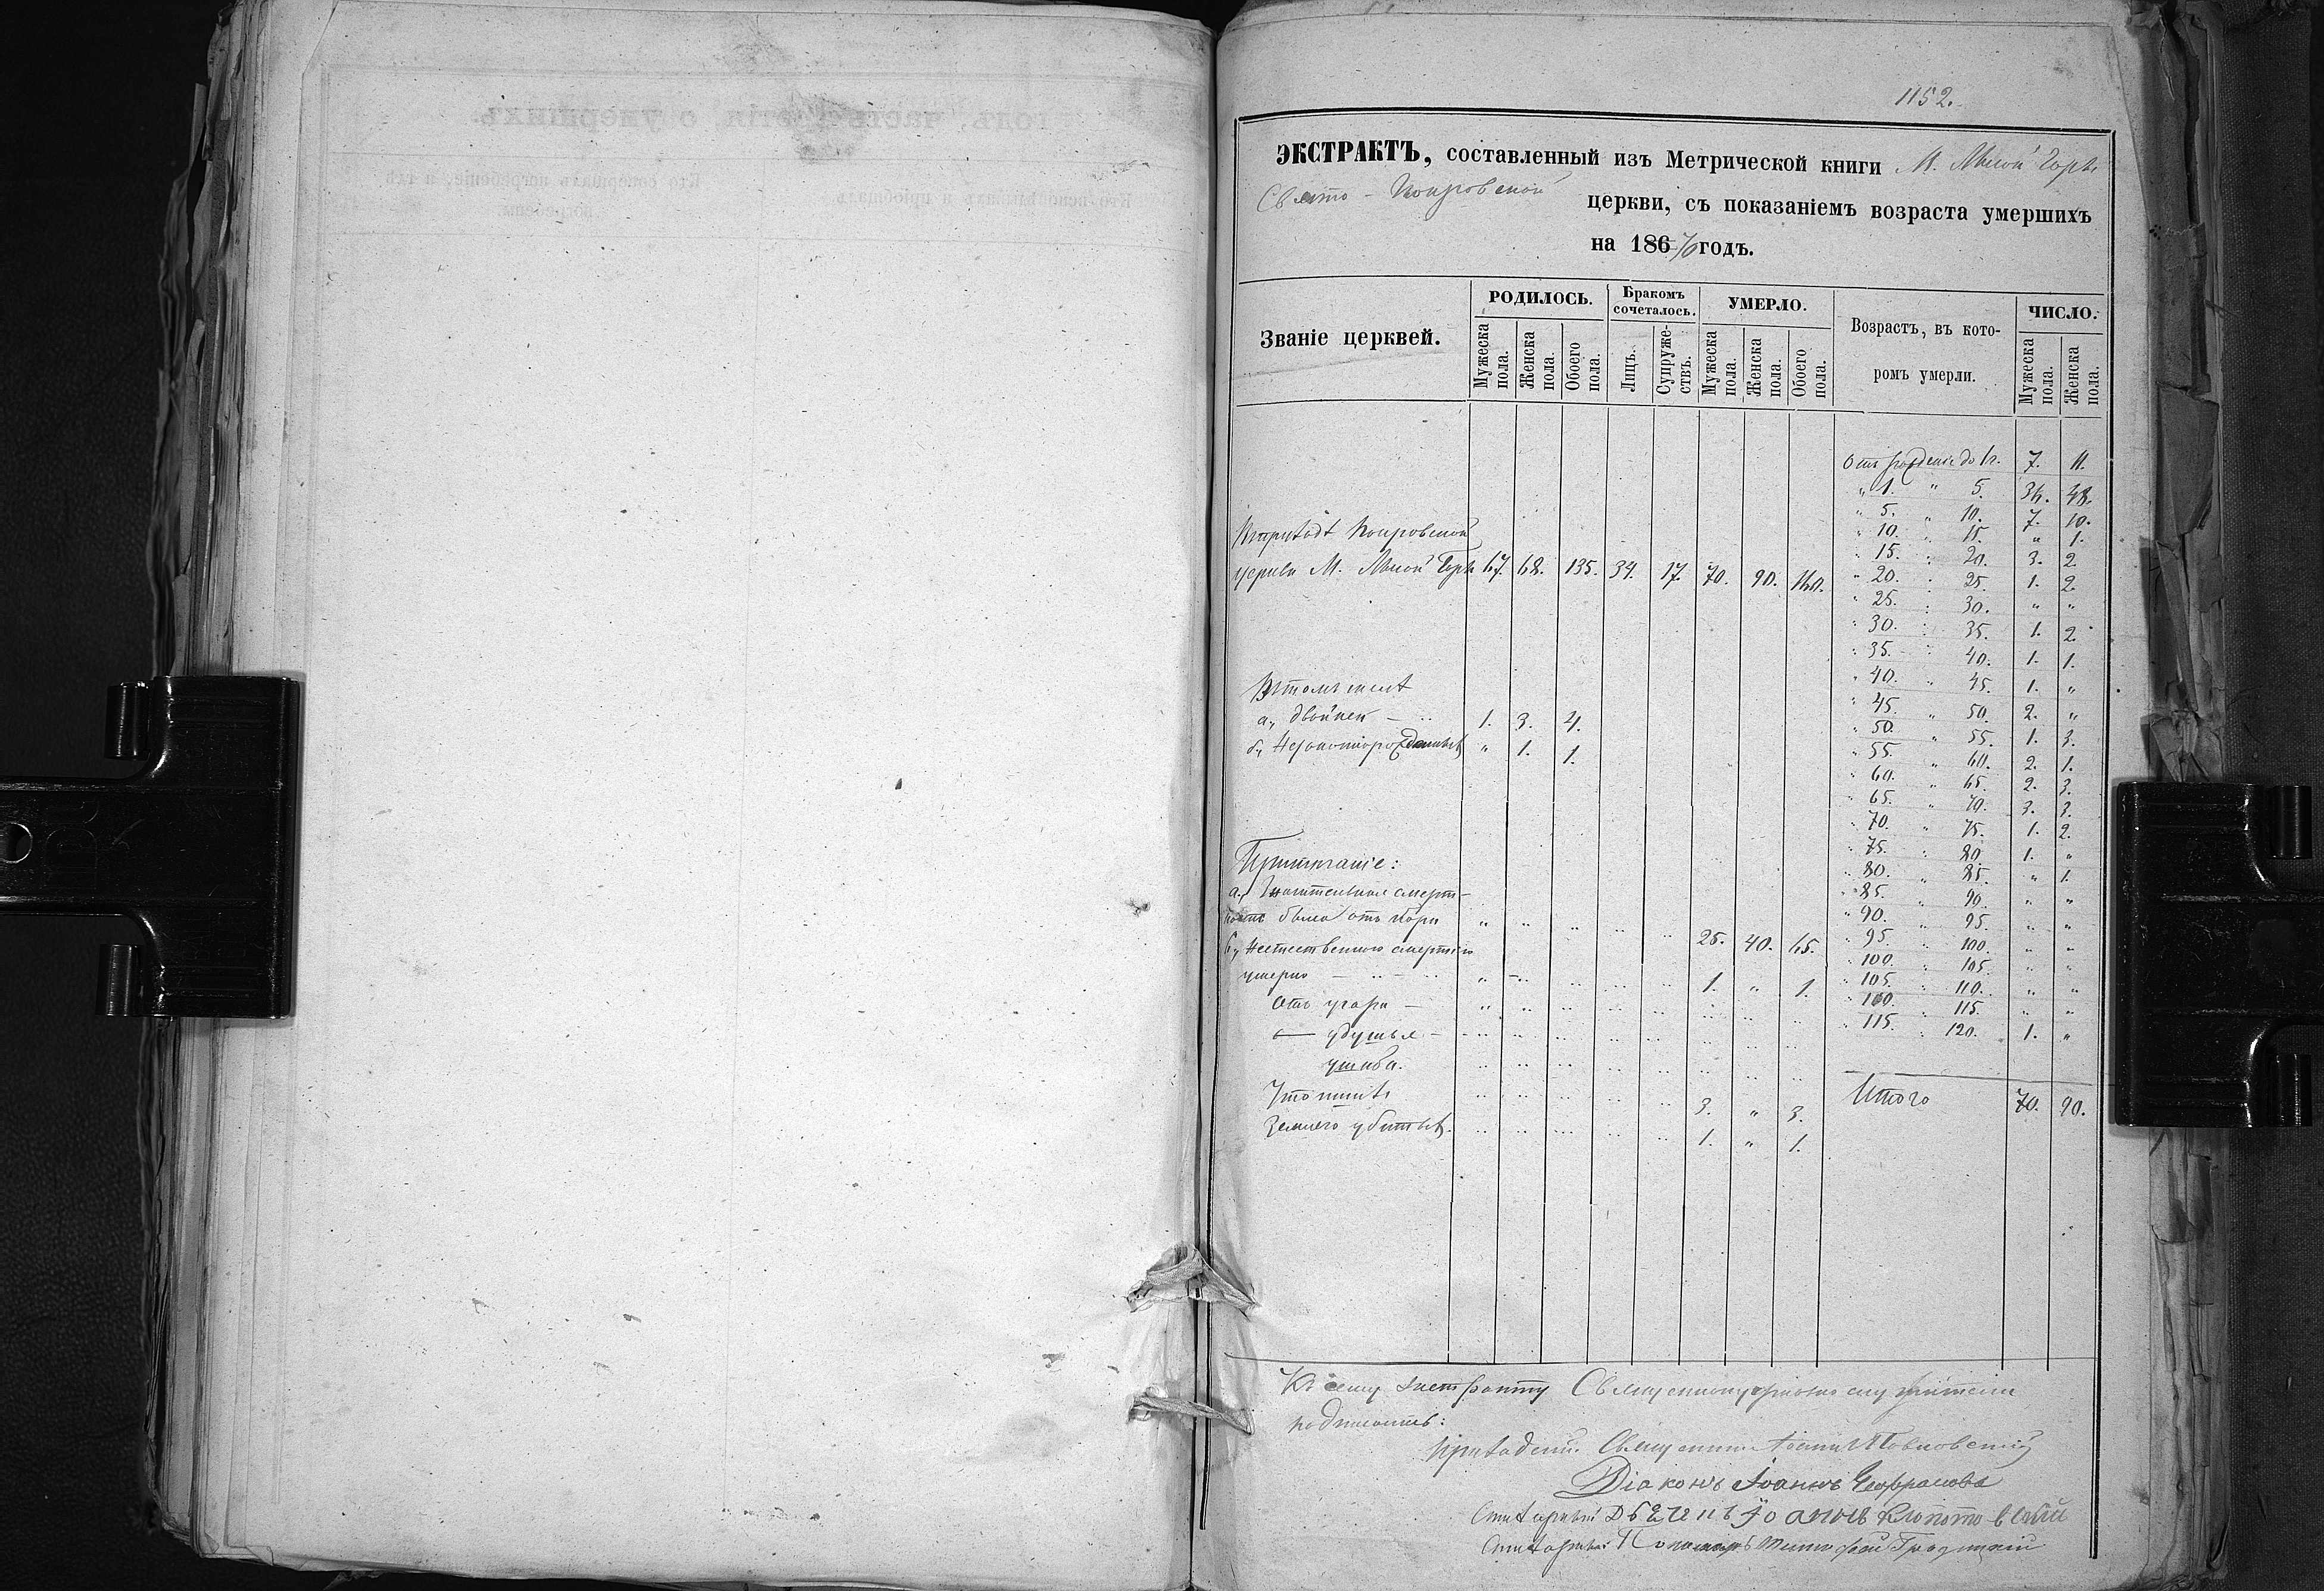 1152.
ЭКСТРАКТЪ, составленный изъ Метрической книги М. Лысой Горѣ
Свято - Покровской церкви, съ показаніемъ возраста умершихъ
на 1867/0 годъ.
Званіе церквей.
РОДИЛОСЬ.
Бракомъ сочеталось.
УМЕРЛО.
Возрастъ, въ кото-
ромъ умерли.
ЧИСЛО.
Мужеска пола. Женска пола. Обоего пола. Лицъ. Супруже-ствъ. Мужеска пола. Женска пола. Обоего пола. Мужеска пола. Женска пола.
Отъ рожденія до 1 г. 7. 11.
" 1. " 5. 36. 48.
" 5. " 10. 7. 10.
" 10. " 15. " 1.
" 15. " 20. 3. 2.
" 20. " 25. 1. 2.
" 25. " 30. " "
" 30. " 35. 1. 2.
" 35. " 40. 1. 1.
" 40. " 45. 1. "
" 45. " 50. 2. "
" 50. " 55. 1. 3.
" 55. " 60. 2. 1.
" 60. " 65. 2. 3.
" 65. " 70. 3. 3.
" 70. " 75. 1. 2.
" 75. " 80. 1. "
" 80. " 85. " 1.
" 85. " 90. " "
" 90. " 95. " "
" 95. " 100. " "
" 100. " 105. " "
" 105. " 110. " "
" 110. " 115. " "
" 115. " 120. 1. "
Итого 70. 90.
Покровской
церкви М. Лысой Горѣ 67. 68. 135. 34. 17. 70. 90. 160.
Въ томъ числѣ
а, двойней 1. 3. 4.
б, Незаконнорожденныхъ " 1. 1.
Примѣчаніе:
а, Значительная смерт-
ность была отъ кори " " " " " 25. 40. 65.
б, Неестественною смертію
умерло 1. " 1.
Отъ угара
— удушья
ушиба.
Утопшихъ 3. " 3.
Землею убитыхъ. 1. " 1.
Къ сему экстракту Священноцерковнослужители
подписались:
Приходскій Священникъ
Діаконъ Іоаннъ
Іоаннъ
Пономарь Градицкій